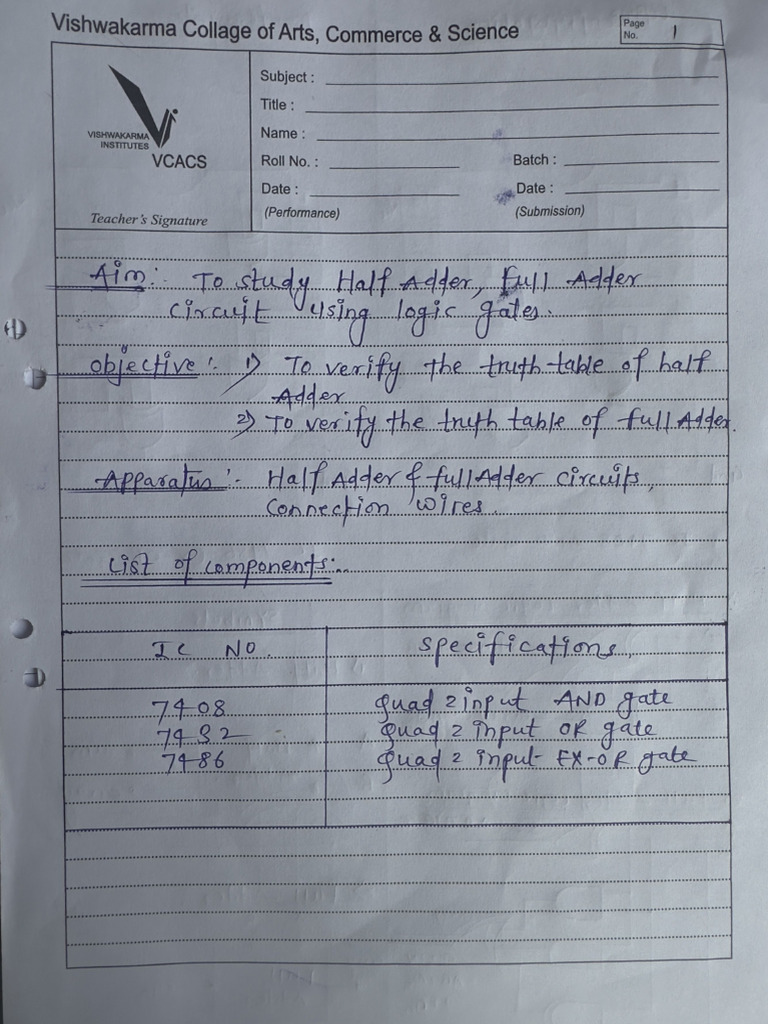 Vishwakarma Collage of Arts, Commerce & Science
Page No. 1
VISHWAKARMA
INSTITUTES
VCACS
Teacher's Signature
Subject :
Title :
Name :
Roll No. : Batch :
Date : Date :
(Performance) (Submission)
Aim:- To study Half Adder, Full Adder
circuit using logic gates.
objective :- 1) To verify the truth-table of half
Adder
2) To verify the truth table of full Adder.
Apparatus :- Half Adder & full Adder circuits,
Connection wires.
List of components:-
IC NO. Specifications
7408 quad 2 input AND gate
7432 quad 2 input OR gate
7486 quad 2 input EX-OR gate